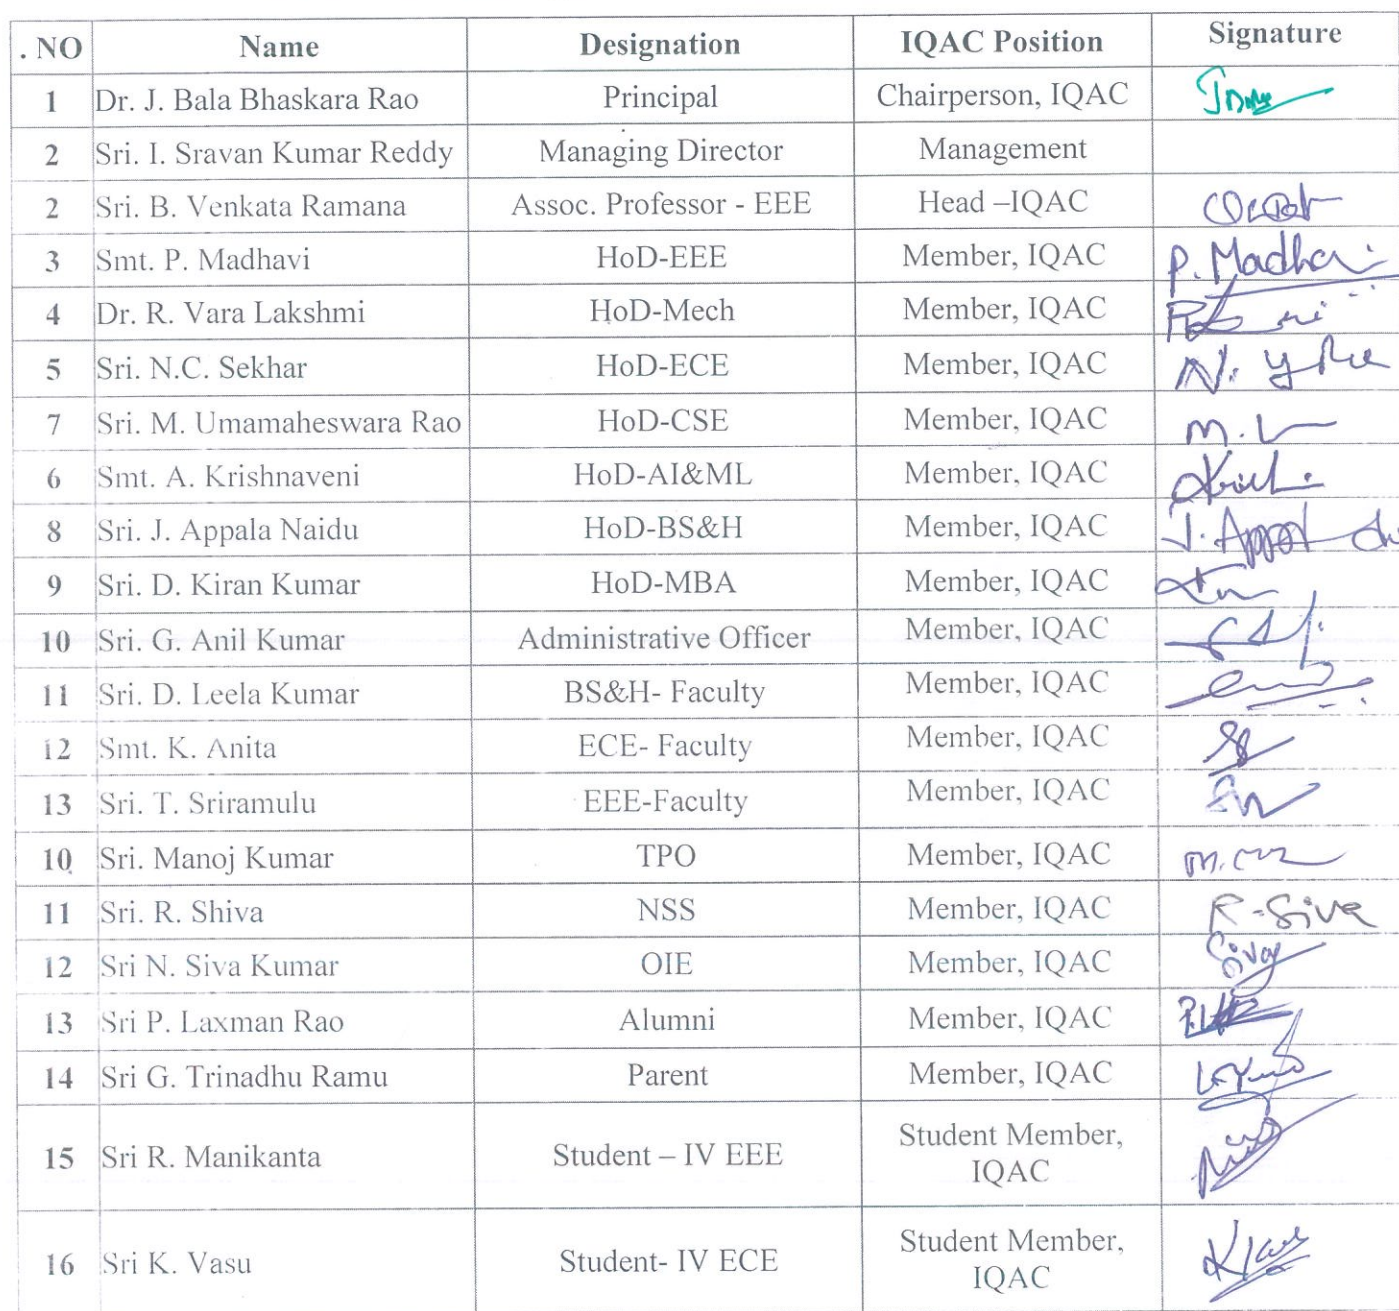 . NO Name Designation IQAC Position Signature
1 Dr. J. Bala Bhaskara Rao Principal Chairperson, IQAC
2 Sri. I. Sravan Kumar Reddy Managing Director Management
2 Sri. B. Venkata Ramana Assoc. Professor - EEE Head –IQAC
3 Smt. P. Madhavi HoD-EEE Member, IQAC P. Madhavi
4 Dr. R. Vara Lakshmi HoD-Mech Member, IQAC
5 Sri. N.C. Sekhar HoD-ECE Member, IQAC
7 Sri. M. Umamaheswara Rao HoD-CSE Member, IQAC
6 Smt. A. Krishnaveni HoD-AI&ML Member, IQAC
8 Sri. J. Appala Naidu HoD-BS&H Member, IQAC
9 Sri. D. Kiran Kumar HoD-MBA Member, IQAC
10 Sri. G. Anil Kumar Administrative Officer Member, IQAC
11 Sri. D. Leela Kumar BS&H- Faculty Member, IQAC
12 Smt. K. Anita ECE- Faculty Member, IQAC
13 Sri. T. Sriramulu EEE-Faculty Member, IQAC
10 Sri. Manoj Kumar TPO Member, IQAC
11 Sri. R. Shiva NSS Member, IQAC R-Siva
12 Sri N. Siva Kumar OIE Member, IQAC
13 Sri P. Laxman Rao Alumni Member, IQAC
14 Sri G. Trinadhu Ramu Parent Member, IQAC
15 Sri R. Manikanta Student – IV EEE Student Member,
IQAC
16 Sri K. Vasu Student- IV ECE Student Member,
IQAC